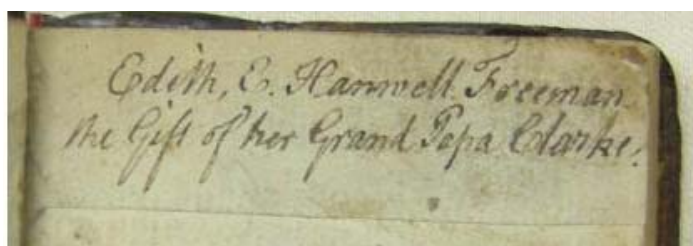 Edith, E. Hanwell Freeman
the Gift of her Grand Papa Clarke.